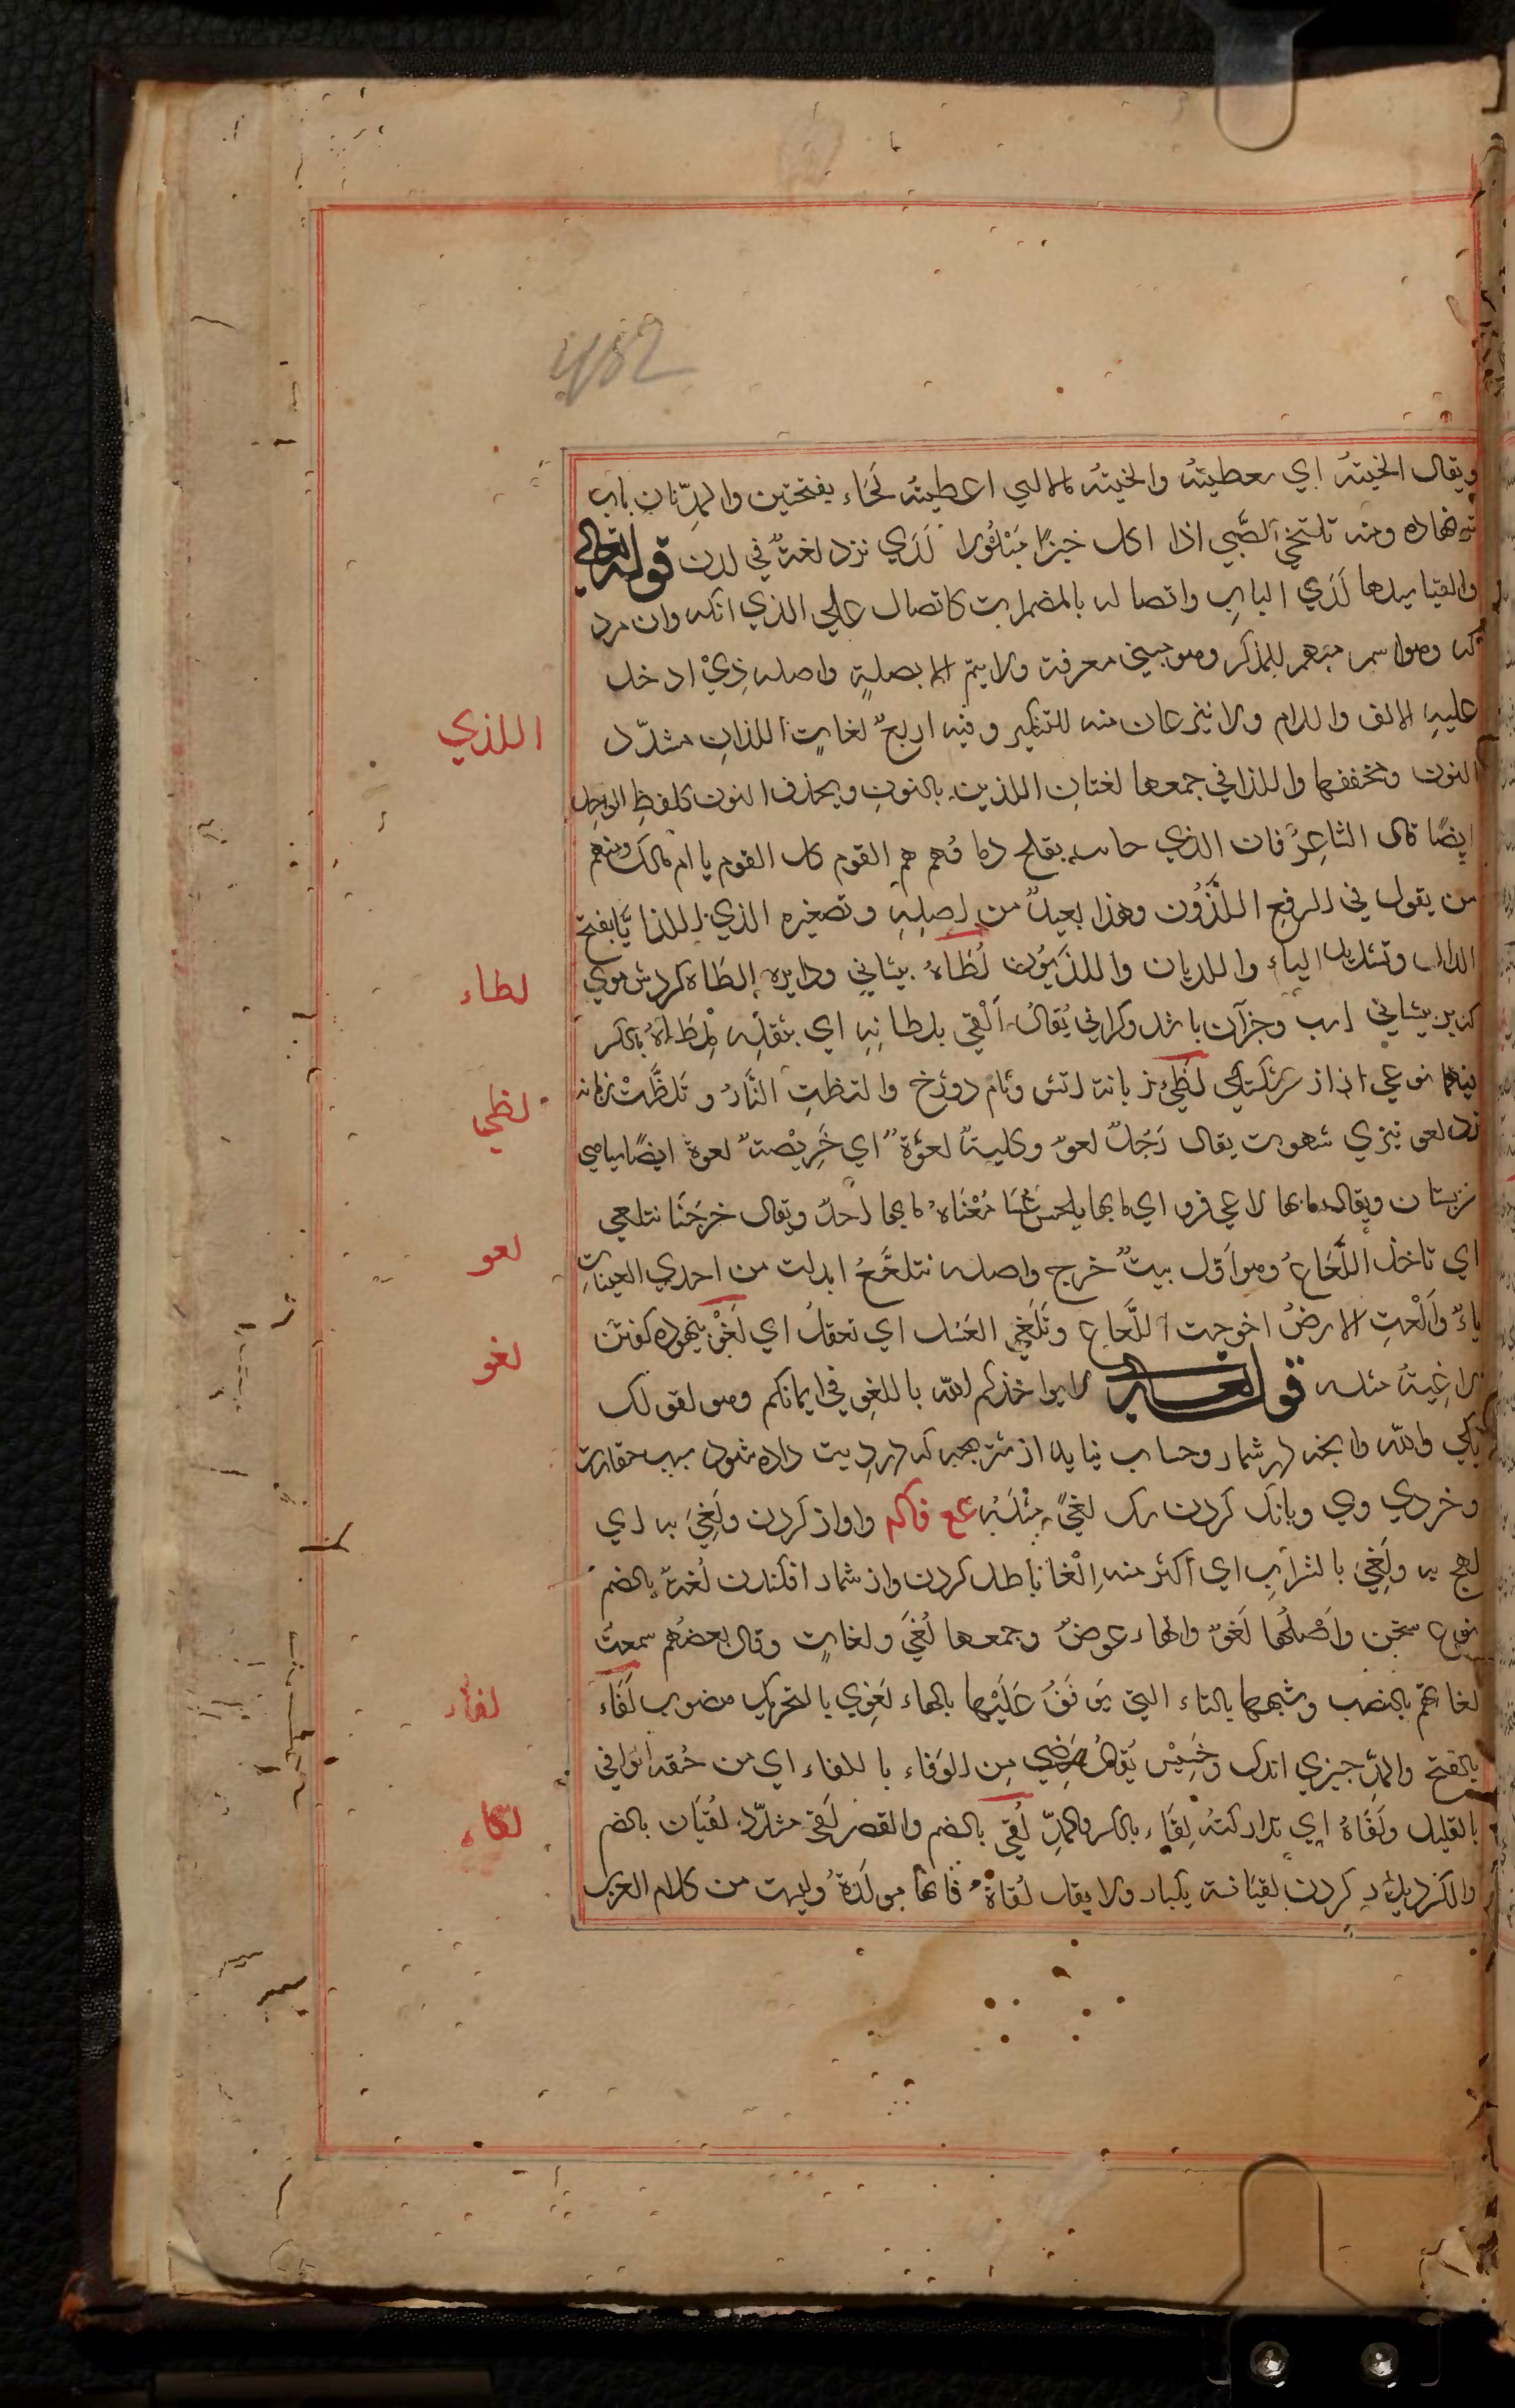 482
ويقال الخيته اي سعطيته والخيته مالالبي اعطيته لخاء بفتحتين والمدّ نان باب
نهاده ومنه تلتخي الصّبي اذا اكل خبزًا مبلولا لَدَي نزد لغةٌ في لدن قوله تعالي
والفيا سيدها لَدَي الباب واتصاله بالمضمرات كاتصال علي الذي انكه وان مرد
كه وهو اسم مبهم للمذكر وهو مبني معرفة ولا يتم الا بصلةٍ واصله ذِيْ ادخل
عليه الالف واللام ولا ينزعان منه للتنكير وفيه اربع لغاتٍ اللذانِ مشدّد
اللذي
النون ومخففها واللذا في جمعها لغتان اللذين بالنون وبحذف النون كلفظِ الواحد
ايضًا قال الشاعرُ فان الذي حانت بفلج دماؤهم هم القوم كل القوم يا ام مالك ومنهم
من يقول في الرفع اللّذُون وهذا بعيدٌ من اصلِهِ وتصغيره الذي اللذيّا بفتح
الذال وتشديد الياء واللذيان واللذيُون لُطَاةُ بيشاني ودايره الطَاة كردش موي
لطاء
بيشاني اسب وجزآن باشد وكراني يُقالُ اَلْقي بلطاتِهِ اي بثقلِه مِلطاةُ بالكسر
نوعي از شكستكي لَظيٰ زبانه اتش ونام دوزخ والتظتِ النّارُ وتَلظّتْ زبانه
لظي
زد لعو تيزي شهوت يقال رَجُلٌ لعوٌ وكلبةٌ لعوَةٌ اي حَرِيْصةٌ لعوة ايضًا سياهي
بستان ويقال ما بها لاعي قرو اي ما بها يلحس عُسًّا مَعْنَاهُ ما بها احدٌ ويقال خرجْنا نتلعي
لعو
اي ناخذ اللُّعَاعُ وهو اوّل بيتٌ خرج واصله نتلعَّعُ ابدلت من احدي العينات
ياءٌ واَلْعتِ الارضُ اخرجت اللُّعاع وتَلَعّي العَسَل اي تعقّدُ اي لَغْو بيهوده كفتن
لغو
لاغِيةٌ مثله قوله تعالي لا يواخذكم الله باللغوِ في ايمانكم وهو لقولك
بلي والله وانجه در شمار وحساب نيايد از شتر بجه كه در دِيت داده شود بسبب حقارت
وخردي وي وبانك كردن سك لغيً مِثْلَهُ عع فاكم واواز كردن ولَغِيَ به اي
لهج به ولَغِيَ بالشرابِ اي اكثر منه اِلْغا باطل كردن واز شمار افكندن لُغةٌ بالضم
نوع سخن واَصْلُها لُغوٌ والهاء عوضٌ وجمعها لُغيً ولغاتٍ وقال بعضُهم سمعتُ
لغاتهم بالنصب وشبهها بالتاء التي يوقفُ عَلَيْها بالهاء لَغوي بالتحريك منسوب لَفَاء
لفاء
بالفتح والمدّ جيزي اندك وخَسِيْس يُقالُ رَضِي مِن الوَفاء باللفاء اي من حُقه الوافي
بالقليل ولَفَاهُ اي تداركتُهُ لِقَاء بالكسر والمدّ لُقي بالضم والقصر لَقيّ مشدّد لُقيَان بالضم
لقاء
والكسر ديدار كردن لقيَانة يكبار ولا يقال لَقاةٌ فانها مولّدةٌ وليست من كلام العرب